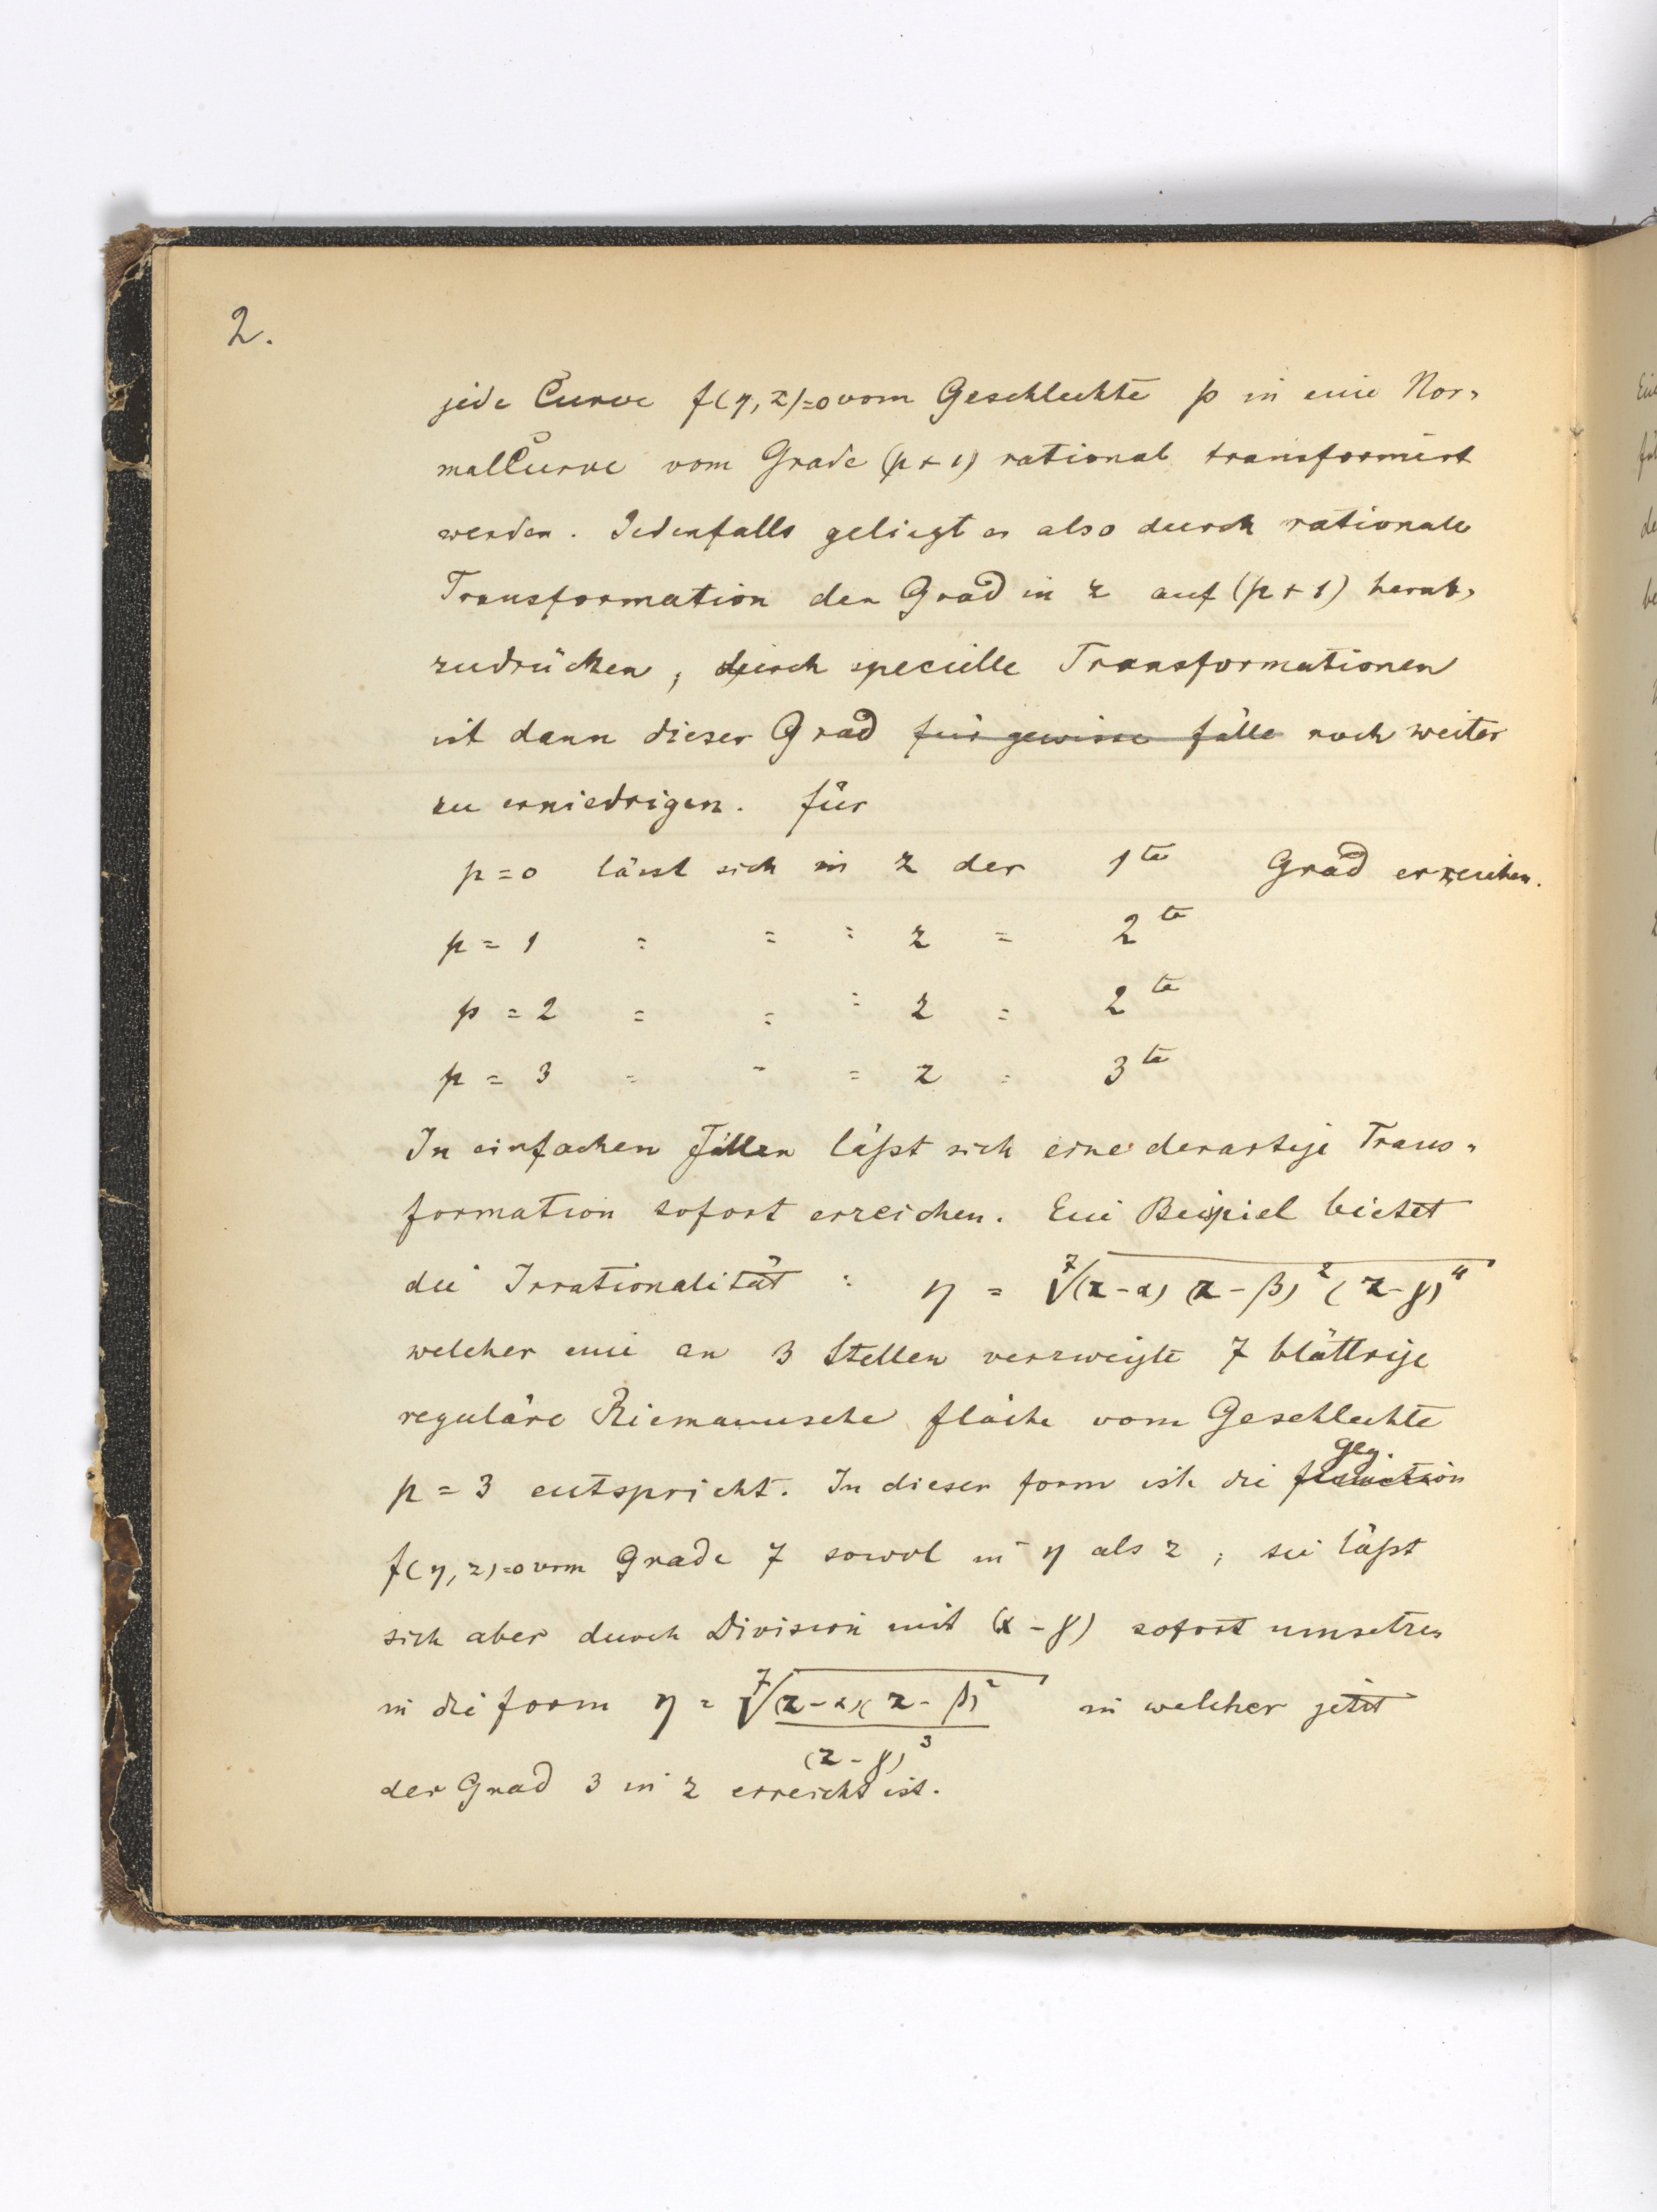 2.
jede Curve f(η, z)=0 vom Geschlechte p in eine Nor-
malCurve vom Grade (p+1) rational transformirt
werden. Jedenfalls geliegt es also durch rationale
Transformation den Grad in z auf (p+1) herab-
zudrücken, durch specielle Transformationen
ist dann dieser Grad für gewisse fälle noch weiter
zu erniedrigen. für
p=0 lässt sich in z der 1te Grad erreichen.
p = 1 = = = z = 2te
p = 2 = = = z = 2te
p = 3 = = = z = 3te
In einfachen Fällen läßt sich eine derartige Trans-
formation sofort erreichen. Ein Beispiel bietet
die Irrationalität : η = ⁷√(z-α) (z-β)² (z-γ)⁴
welcher eine an 3 Stellen verzweigte 7 blättrige
reguläre Riemannsche fläche vom Geschlechte
p = 3 entspricht. In dieser form ist die function glg.
f(η, z)=0 vom Grade 7 sowol in η als z, sie läßt
sich aber durch Division mit (z-γ) sofort umsetzen
in die form η = ⁷√(z-α)(z-β)² in welcher jetzt
(z-γ)³
der Grad 3 in z erreicht ist.